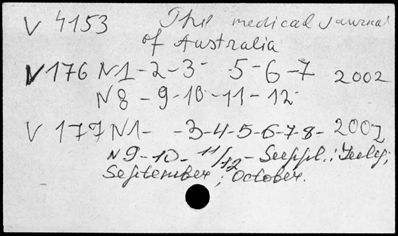 V 4153 The medical journal
of Australia
V 176 N1-2-3- 5-6-7 2002
N8-9-10-11-12-
V 177 N1- -3-4-5-6-7-8- 2002
N9-10-11/12- Suppl.: July;
September; October.